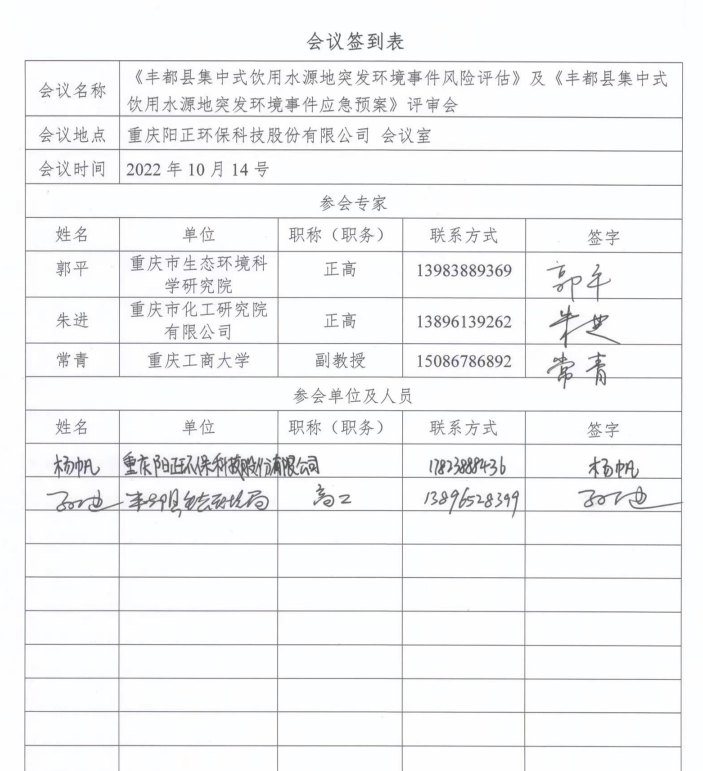 会议签到表
会议名称
《丰都县集中式饮用水源地突发环境事件风险评估》及《丰都县集中式
饮用水源地突发环境事件应急预案》评审会
会议地点 重庆阳正环保科技股份有限公司 会议室
会议时间 2022 年 10 月 14 号
参会专家
姓名 单位 职称（职务） 联系方式 签字
郭平 重庆市生态环境科
学研究院 正高 13983889369 郭平
朱进 重庆市化工研究院
有限公司 正高 13896139262 朱进
常青 重庆工商大学 副教授 15086786892 常青
参会单位及人员
姓名 单位 职称（职务） 联系方式 签字
杨帆 重庆阳正环保科技股份有限公司 17823888436 杨帆
丰都县生态环境局 高工 13896528399